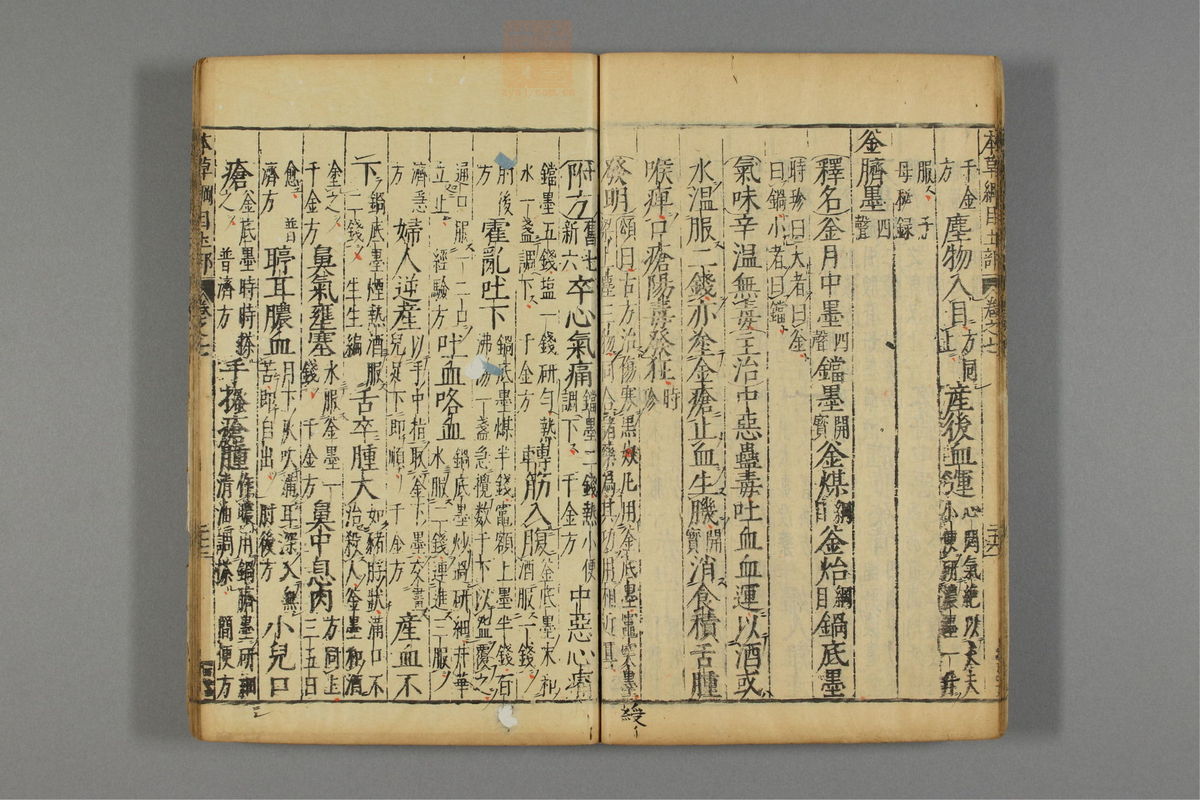 本草綱目土部 卷之七
千金方 塵物入目 方同上 產後血運 心悶氣絕以丈夫小便研濃墨一升
服 子母秘録
釜臍墨 四聲
釋名釜月中墨 四聲 鐺墨 開寶 釜煤 綱目 釜炲 綱目 鍋底墨
時珍曰大者曰釜曰鍋小者曰鐺
氣味辛溫無毒主治中惡蠱毒吐血血運以酒或
水溫服二錢亦塗金瘡止血生肌 開寶 消食積舌腫
喉痺口瘡陽毒發狂 時珍
發明 頌曰古方治傷寒黑奴丸用釜底墨竈突墨梁上塵三物同合諸藥爲其功用相近耳
附方 舊七新六 卒心氣痛 鐺墨二錢熱小便調下千金方 中惡心痛
鐺墨五錢塩一錢研匀熱水一盞調下千金方 轉筋入腹 釜底墨末和酒服一錢
肘後方 霍亂吐下 鍋底墨煤半錢竈額上墨半錢百沸湯一盞急攪數千下以盌覆之
通口服一二口立止 經驗方 吐血咯血 鍋底墨炒過研細井華水服二錢連進三服
濟急方 婦人逆產 以手中指取釜下墨交畫兒足下即順千金方 產血不
下 鍋底墨煙熱酒服二錢 生生編 舌卒腫大 如猪脬狀滿口不治殺人釜墨和酒
塗之 千金方 鼻氣壅塞 水服釜墨一錢千金方 鼻中息肉 方同上三五日
愈 普濟方 聤耳膿血 月下灰吹滿耳深入無苦即自出 肘後方 小兒口
瘡 釜底墨時時搽之 普濟方 手搔瘡腫 作膿用鍋臍墨研細清油調搽 簡便方
本草綱目土部 卷之七